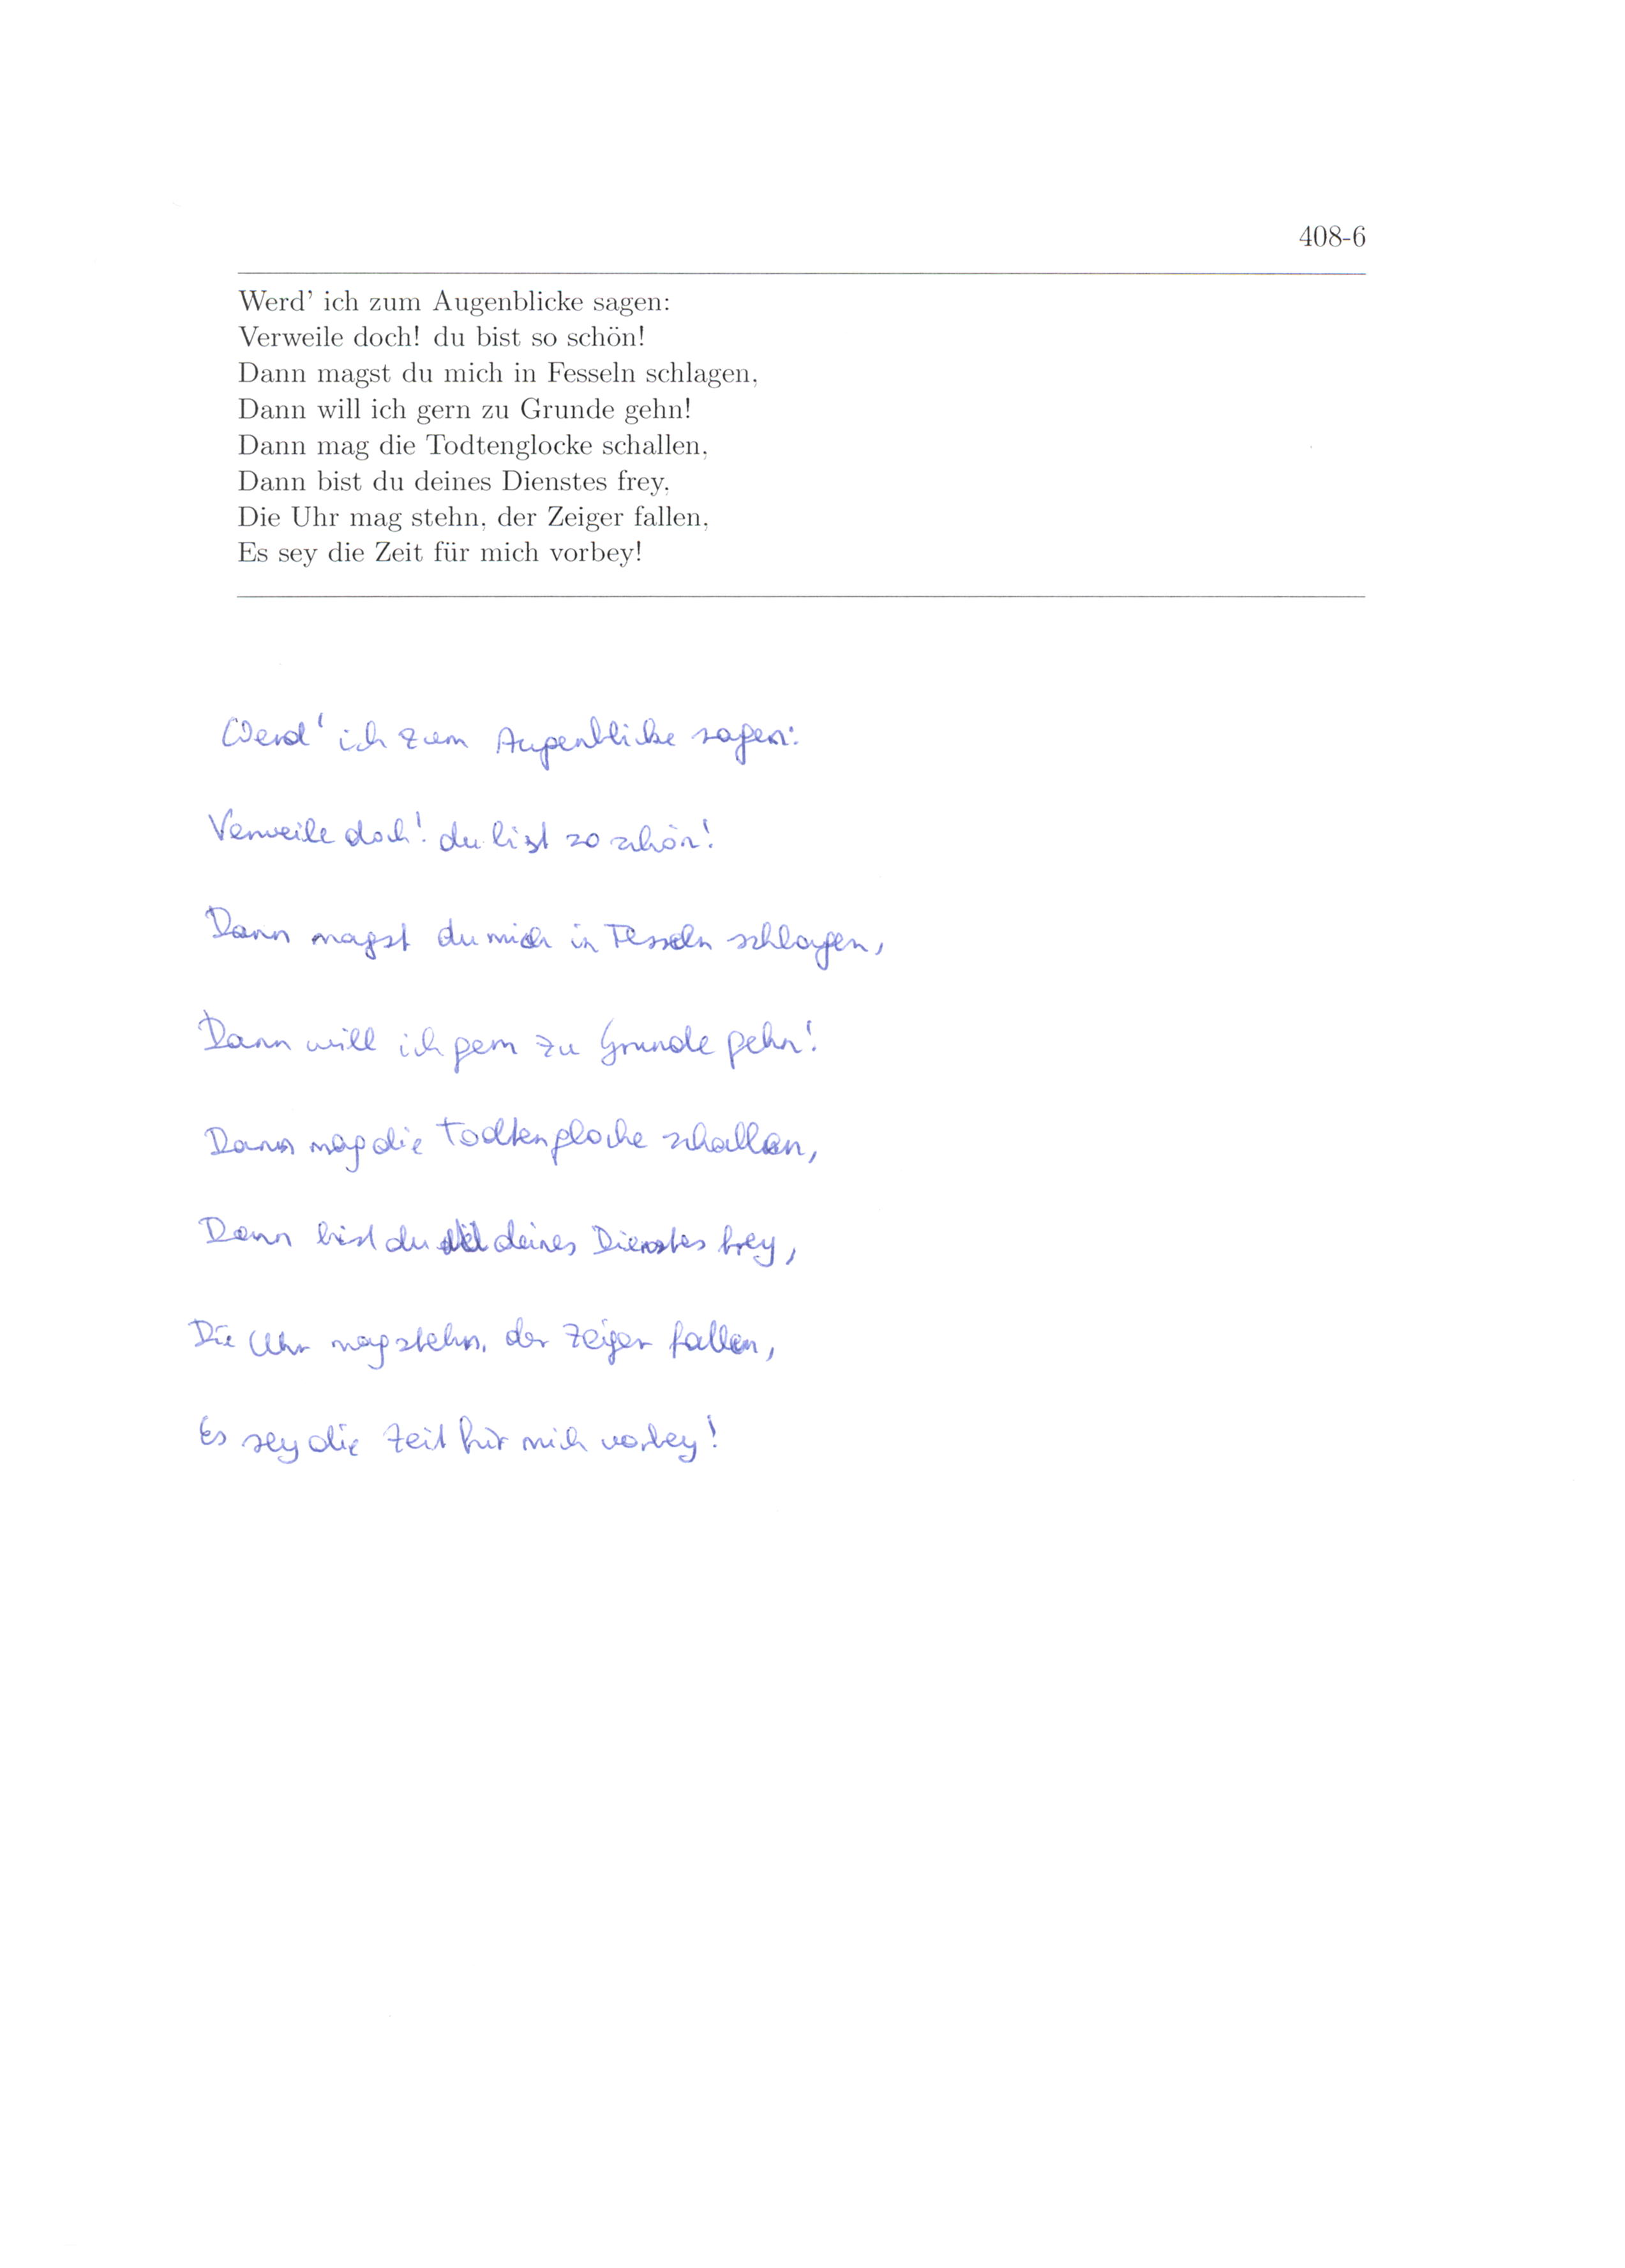 408-6
Werd' ich zum Augenblicke sagen:
Verweile doch! du bist so schön!
Dann magst du mich in Fesseln schlagen,
Dann will ich gern zu Grunde gehn!
Dann mag die Todtenglocke schallen,
Dann bist du deines Dienstes frey,
Die Uhr mag stehn, der Zeiger fallen,
Es sey die Zeit für mich vorbey!
Werd' ich zum Augenblicke sagen:
Verweile doch! du bist so schön!
Dann magst du mich in Fesseln schlagen,
Dann will ich gern zu Grunde gehn!
Dann mag die Todtenglocke schallen,
Dann bist du deines Dienstes frey,
Die Uhr mag stehn, der Zeiger fallen,
Es sey die Zeit für mich vorbey!